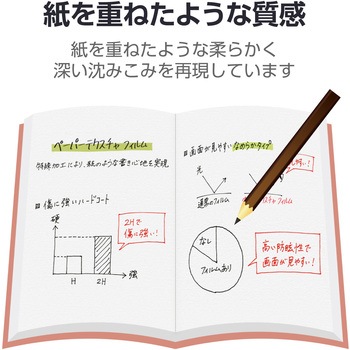 紙を重ねたような質感
紙を重ねたような柔らかく
深い沈みこみを再現しています
ペーパーテクスチャフィルム
特殊加工により、紙のような書き心地を実現
傷に強いハードコート
硬
2Hで
傷に強い!
H
2H
強
画面が見やすいなめらかタイプ
光
通常のフィルム
スチャフィルム
なし
フィルムあり
高い防眩性で
画面が見やすい!